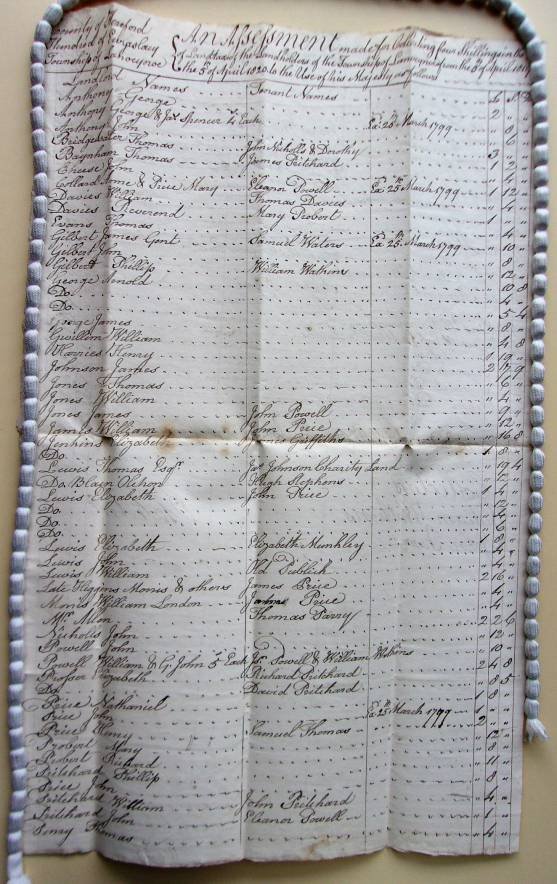 County of Hereford
Hundred of Ewyaslacy
Township of
An Assessment made for Collecting four Shillings in the
of Landtax of the Landholders of the Township of from the 5th of April 1819
to the 5th of April 1820 to the Use of his Majesty as follows
Landlord Names Tenant Names £ S D
Anthony George 2 " "
Anthony George & Jas Spencer 4s Each Ex 25th March 1799 " 8 "
Anthony John " 6 "
Thomas John Nicholls & Dorothy 3 " "
Baynham Thomas James Pritchard 1 2 "
Cheese John " 4 "
Anne & Price Mary Eleanor Powell Ex 25th March 1799 1 12 "
Davies William Thomas Davies " 4 "
Davies Reverend Mary Probert 1 " "
Evans Thomas " 4 "
Gilbert James Gent Samuel Waters Ex 25th March 1799 " 10 "
Gilbert John " 8 "
Gilbert Phillip William Watkins " 12 "
George Arnold " 10 8
Do " 4 "
Do " 5 4
George James " 8 "
Gwillim William " 4 8
Harries Henry 1 19 "
Johnson James 2 17 9
Jones Thomas " 6 "
Jones William " 4 "
Jones James John Powell " 9 "
James William John Price " 12 "
Jenkins Elizabeth James Griffiths " 16 8
Do 1 8 "
Lewis Thomas Esqr Jas Johnson Charity Land " 19 4
Do Blain Olchon Hugh Stephens " "
Lewis Elizabeth John Price 1 4 "
Do " "
Do " 4 "
Do " 6 "
Lewis Elizabeth Elizabeth Munkley 1 8 "
Lewis John " 4 "
Lewis William Old " 4 "
Late Higgins Morris & others James Price 2 16 "
Morris William London James Price " 4 "
Mr Allen Thomas Parry " 4 "
Nicholls John 2 2 6
Powell John " 12 "
Powell William & G. John 5s Each Js Powell & William Watkins " 10 "
Prosser Elizabeth Richard Pritchard 2 4 8
Do David Pritchard " 8 5
Price Nathaniel 1 8 "
Price John Ex 25th March 1799 1 " "
Price Henry Samuel Thomas 2 " "
Probert Mary " 12 "
Probert Richard " 8 "
Pritchard Phillip " 11 "
Price John " 8 "
Pritchard William John Pritchard " 4 "
Pritchard John Eleanor Powell 1 " "
Thomas " 4 "